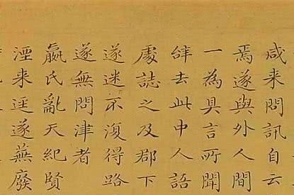 咸来問訊自云
焉遂與外人間
一為具言所聞
辝去此中人語
處誌之及郡下
遂迷不復得路
遂無問津者
嬴氏亂天紀賢
湮来逕遂蕪廢